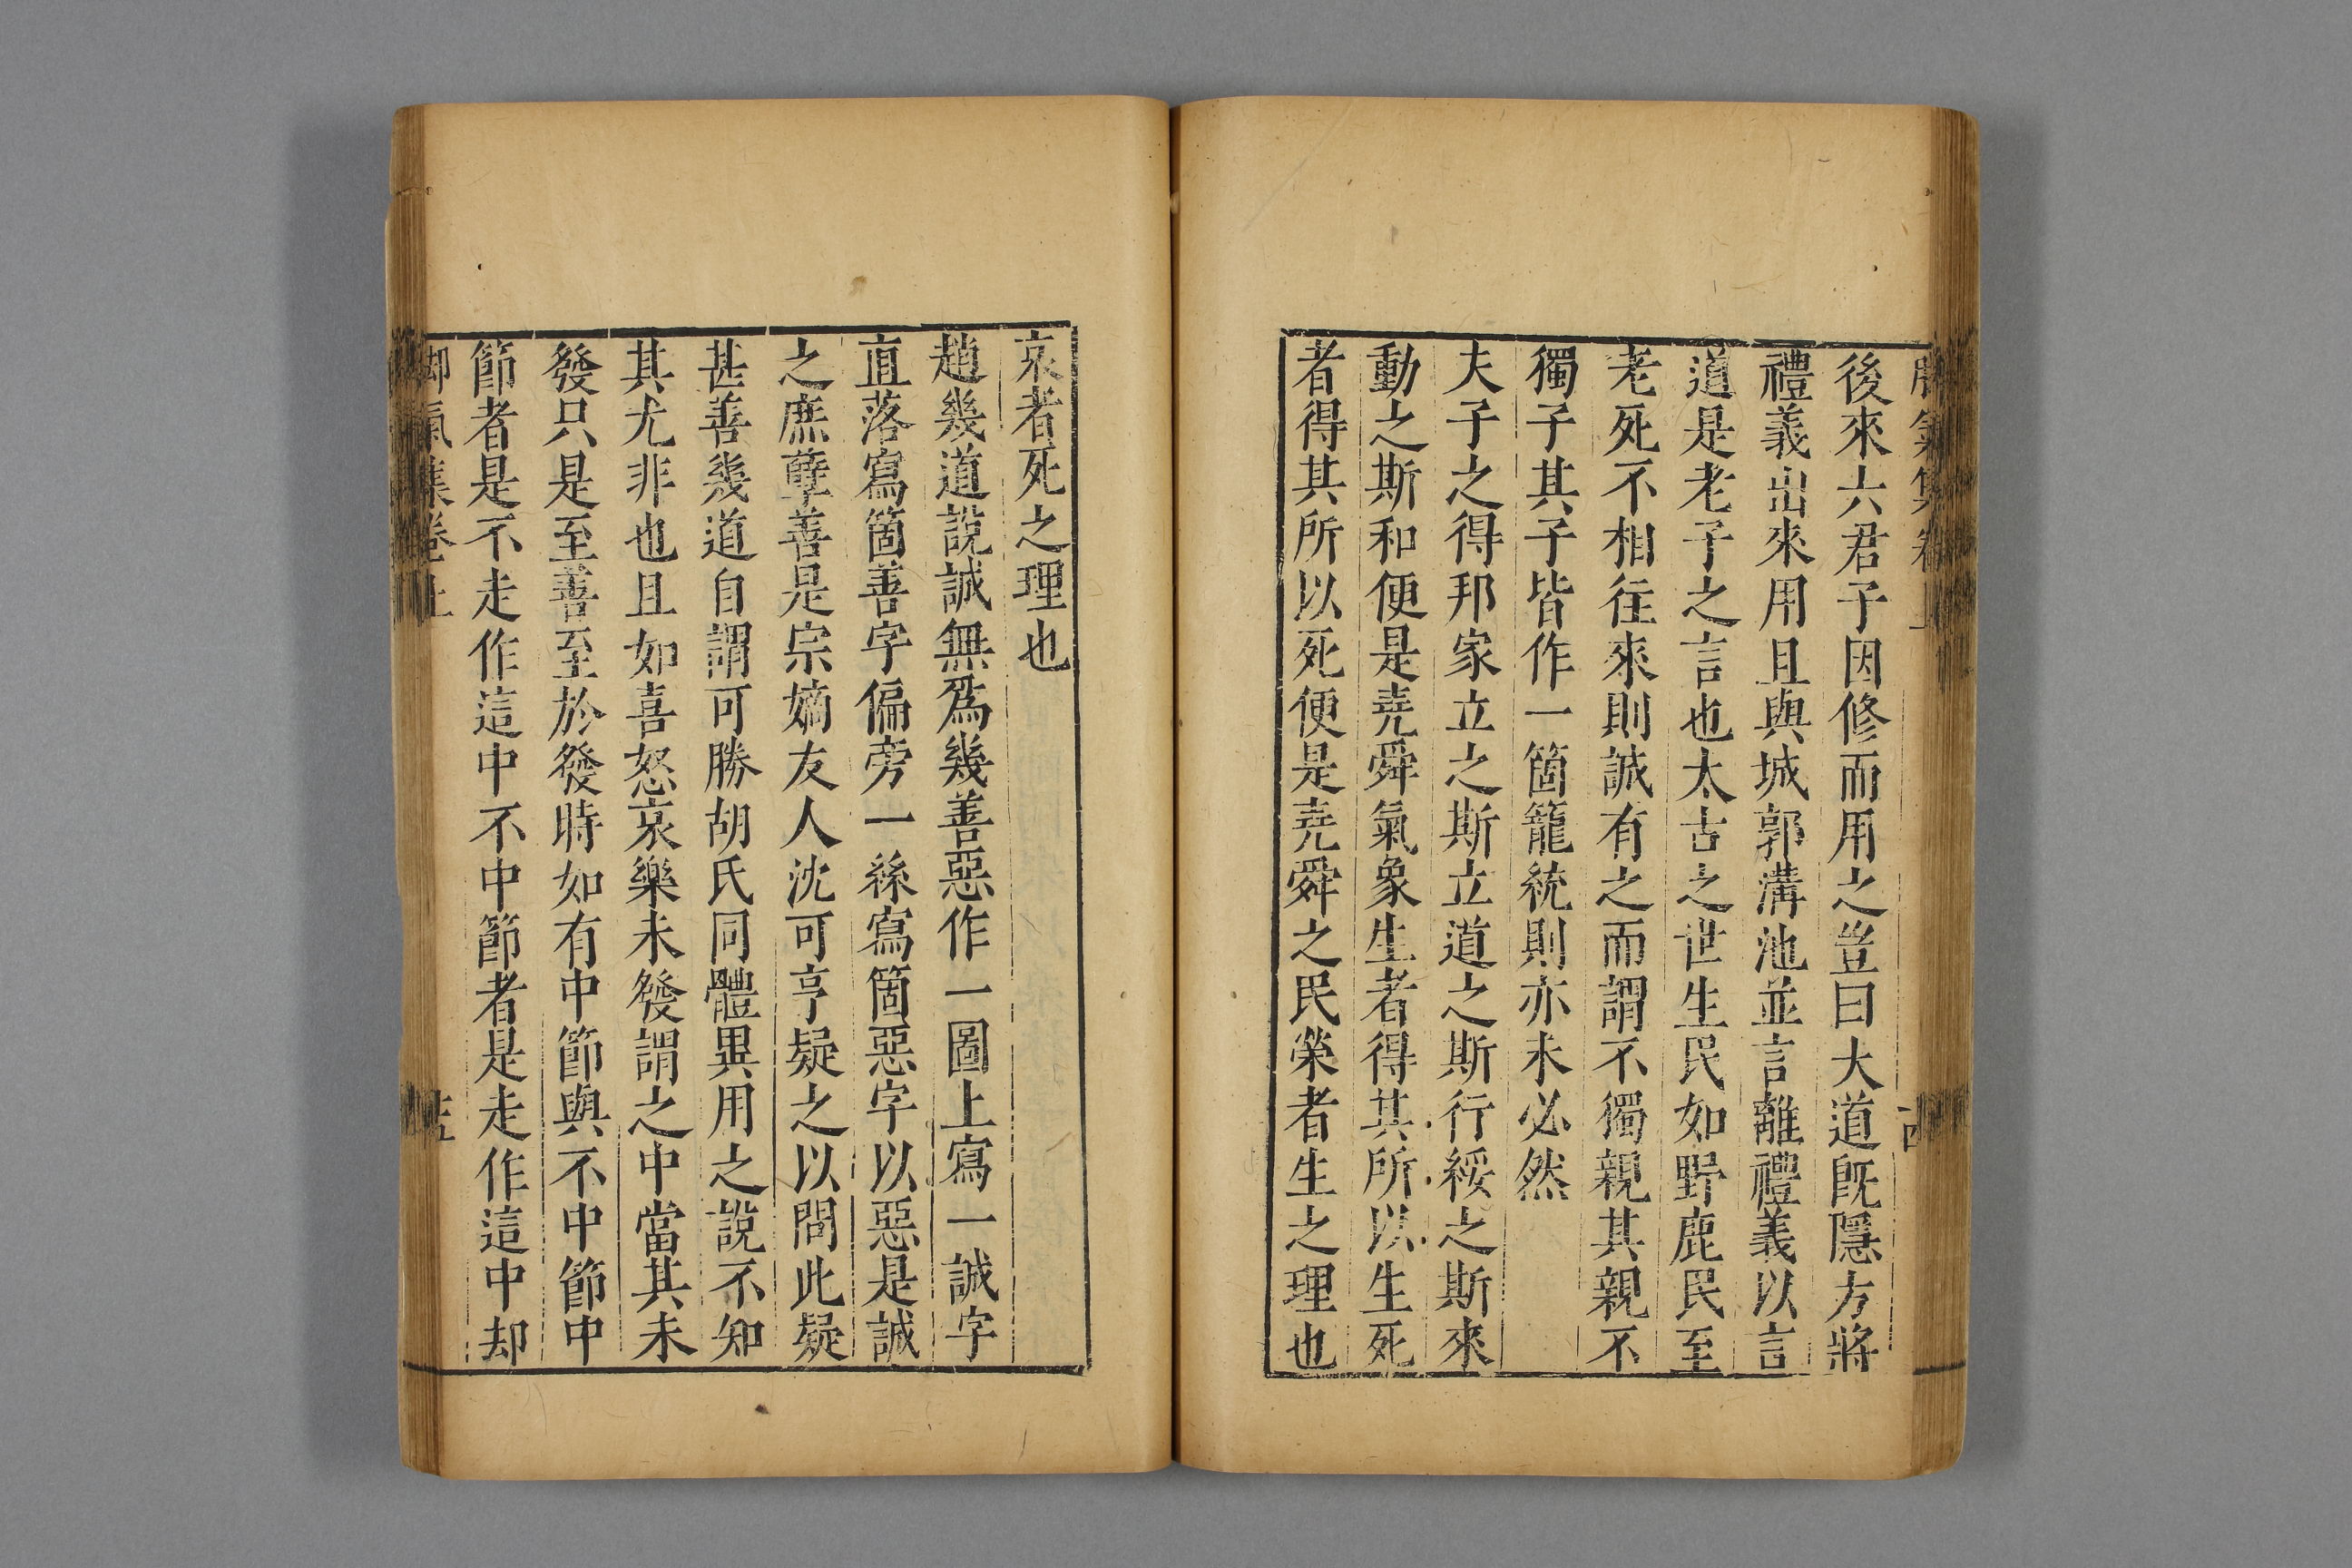 後來六君子因修而用之豈曰大道旣隱方將
禮義出來用且與城郭溝池並言離禮義以言
道是老子之言也太古之世生民如野鹿民至
老死不相往來則誠有之而謂不獨親其親不
獨子其子皆作一箇籠統則亦未必然
夫子之得邦家立之斯立道之斯行綏之斯來
動之斯和便是堯舜氣象生者得其所以生死
者得其所以死便是堯舜之民榮者生之理也
哀者死之理也
趙幾道說誠無爲幾善惡作一圖上寫一誠字
直落寫箇善字偏旁一絲寫箇惡字以惡是誠
之庶孽善是宗嫡友人沈可亨疑之以問此疑
甚善幾道自謂可勝胡氏同體異用之說不知
其尤非也且如喜怒哀樂未發謂之中當其未
發只是至善至於發時如有中節與不中節中
節者是不走作這中不中節者是走作這中却
脚氣集卷上